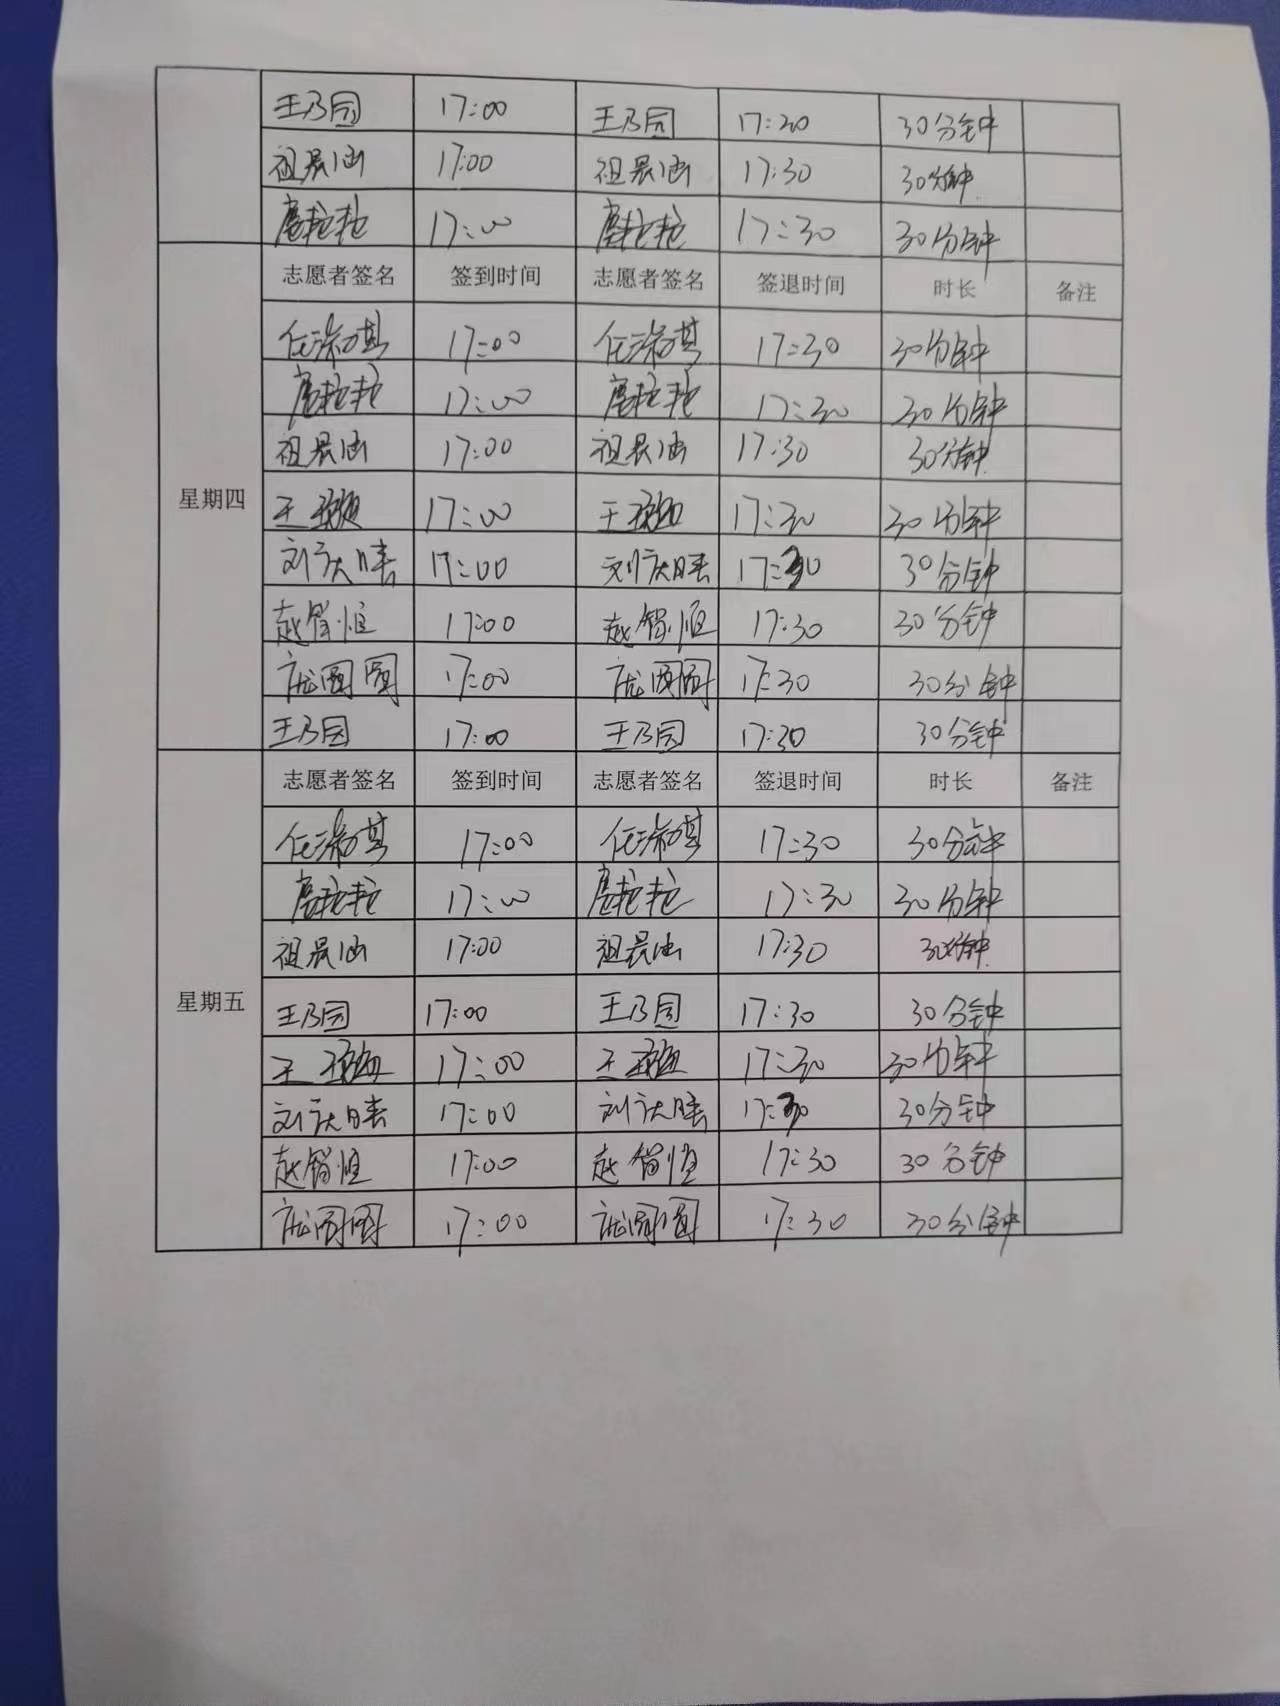 王乃园 17:00 王乃园 17:30 30分钟
祖晨涵 17:00 祖晨涵 17:30 30分钟
17:00 17:30 30分钟
志愿者签名 签到时间 志愿者签名 签退时间 时长 备注
17:00 17:30 30分钟
17:00 17:30 30分钟
祖晨涵 17:00 祖晨涵 17:30 30分钟
星期四
王 17:00 王 17:30 30分钟
刘庆睛 17:00 刘庆睛 17:30 30分钟
赵 恒 17:00 赵 恒 17:30 30分钟
庞圆圆 17:00 庞圆圆 17:30 30分钟
王乃园 17:00 王乃园 17:30 30分钟
志愿者签名 签到时间 志愿者签名 签退时间 时长 备注
17:00 17:30 30分钟
17:00 17:30 30分钟
祖晨涵 17:00 祖晨涵 17:30 30分钟
星期五
王乃园 17:00 王乃园 17:30 30分钟
王 17:00 王 17:30 30分钟
刘庆睛 17:00 刘庆睛 17:30 30分钟
赵 恒 17:00 赵 恒 17:30 30分钟
庞圆圆 17:00 庞圆圆 17:30 30分钟